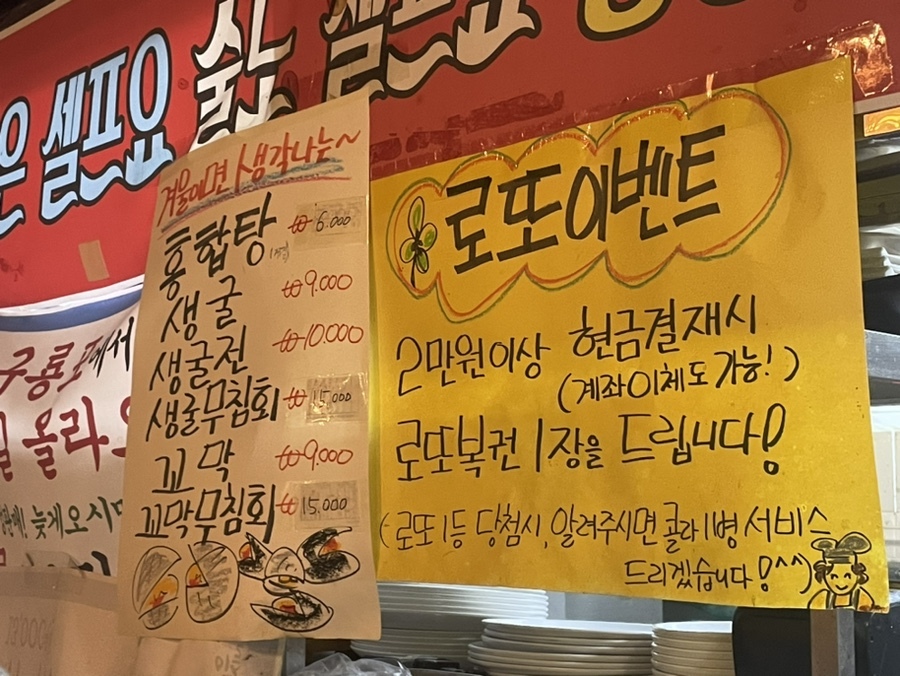 은 셀프요 술도 셀프요
겨울이면 생각나는~
홍합탕 ₩6.000
생굴 ₩9.000
생굴전 ₩10.000
생굴무침회 ₩15.000
꼬막 ₩9.000
꼬막무침회 ₩15.000
로또이벤트
2만원이상 현금결재시
(계좌이체도 가능!)
로또복권 1장을 드립니다!
(로또 1등 당첨시, 알려주시면 콜라 1병 서비스
드리겠습니다!^^)
구룡포에서
올라
늦게오시면